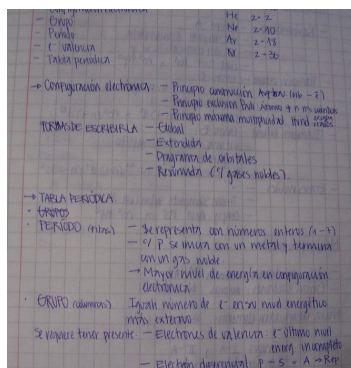 - Grupo
- Periodo
- e⁻ valencia
- Tabla periódica
He z=2
Ne z=10
Ar z=18
Kr z=36
→ Configuración electrónica - Principio construcción
- Principio exclusión Pauli
- Principio máxima multiplicidad Hund
FORMAS DE ESCRIBIRLA - Global
- Extendida
- Diagrama de orbitales
- Resumida (c/ gases nobles)
→ TABLA PERIÓDICA
· GRUPOS
· PERIODO (filas) - Se representa con números enteros (1-7)
- c/ P se inicia con un metal y termina
con un gas noble
→ Mayor nivel de energía en configuración
electrónica
· GRUPO (columnas) Igual número de e⁻ en su nivel energético
más externo
Se requiere tener presente - Electrones de valencia: e⁻ último nivel
energ. incompleto
- Electrón diferencial: P - S = A → Rep